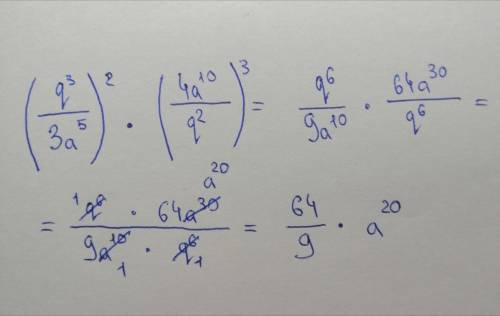 (q³/3a⁵)² · (4a¹⁰/q²)³ = q⁶/9a¹⁰ · 64a³⁰/q⁶ =
= ¹q⁶ · 64a³⁰ a²⁰ / 9a¹⁰ ₁ · q⁶ ₁ = 64/9 · a²⁰